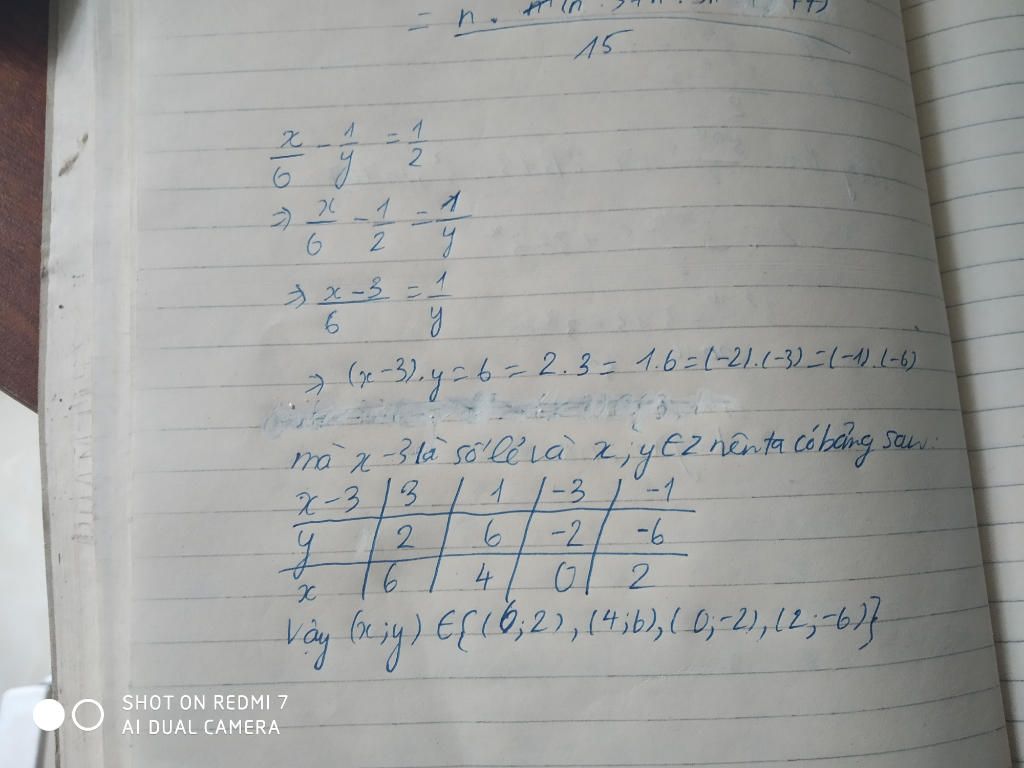 = n.
15
x/6 - 1/y = 1/2
⇒ x/6 - 1/2 = 1/y
⇒ x-3/6 = 1/y
⇒ (x-3).y = 6 = 2.3 = 1.6 = (-2).(-3) = (-1).(-6)
mà x-3 là số lẻ và x;y∈Z nên ta có bảng sau:
x-3 | 3 | 1 | -3 | -1
y | 2 | 6 | -2 | -6
x | 6 | 4 | 0 | 2
Vậy (x;y) ∈ {(6;2),(4;6),(0;-2),(2;-6)}
SHOT ON REDMI 7
AI DUAL CAMERA